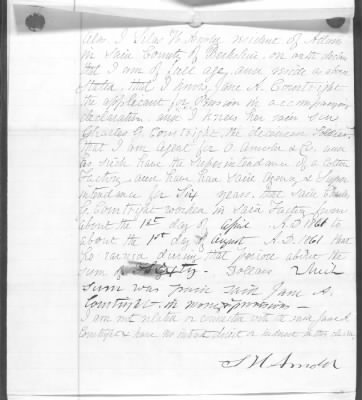 Also I Silas H. Arnold resident of Adams
in Said County of Berkshire, on oath
that I am of full age, and reside as above
Stated, that I know Jane A. Courtright
the applicant for Pension in accompanying
declaration and I knew her son
Charles G. Courtright, the deceased Soldier,
that I am Agent for O. Arnold & Co. and
as such have the Superintendance of a Cotton
Factory and have had said Agency & Super-
intendance for Six years. that said Charles
G. Courtright worked in Said Factory from
about the 1st day of April A.D. 1861 to
about the 1st day of August A.D. 1861 that
he earned during that period about the
sum of Sixty- Dollars Which
sum was paid to Jane A.
Courtright in money & provisions
I am not related or connected with a said Jane A.
Courtright & have no interest direct or indirect in this claim,
S H Arnold